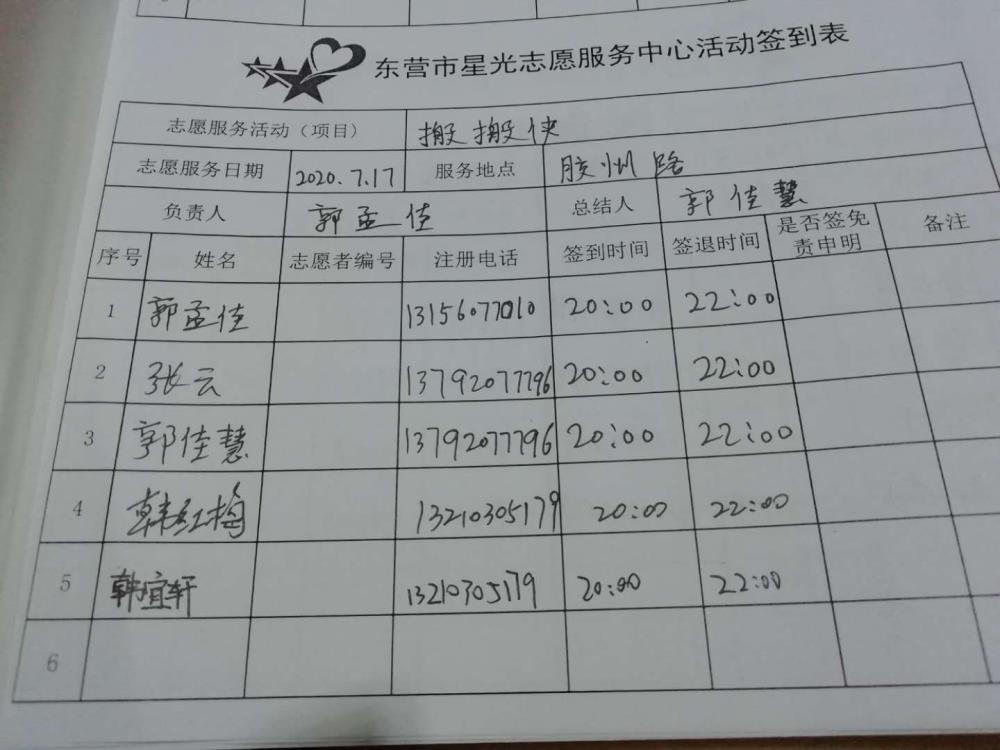 东营市星光志愿服务中心活动签到表
志愿服务活动（项目） 搬搬侠
志愿服务日期 2020.7.17 服务地点 胶州路
负责人 郭孟佳 总结人 郭佳慧
序号 姓名 志愿者编号 注册电话 签到时间 签退时间 是否签免责申明 备注
1 郭孟佳 13156077010 20:00 22:00
2 张云 13792077796 20:00 22:00
3 郭佳慧 13792077796 20:00 22:00
4 韩红梅 13210305179 20:00 22:00
5 韩宜轩 13210305179 20:00 22:00
6